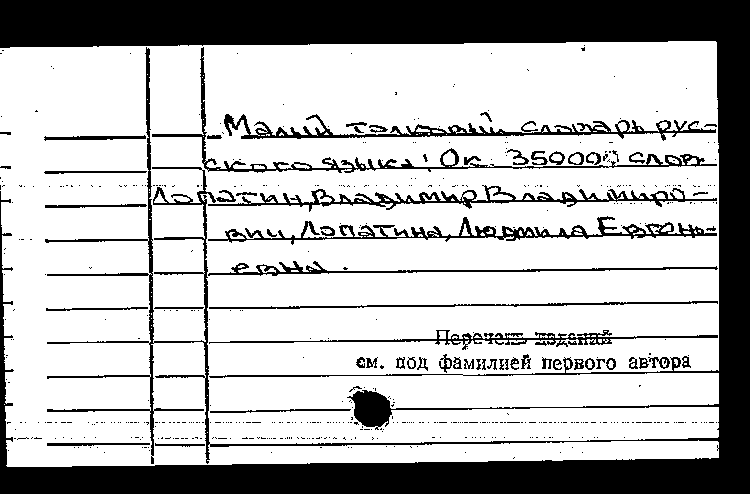 Малый толковый словарь рус-
ского языка: Ок. 35000 слов
Лопатин, Владимир Владимиро-
вич, Лопатина, Людмила Евгень-
евна.
Перечень изданий
см. под фамилией первого автора